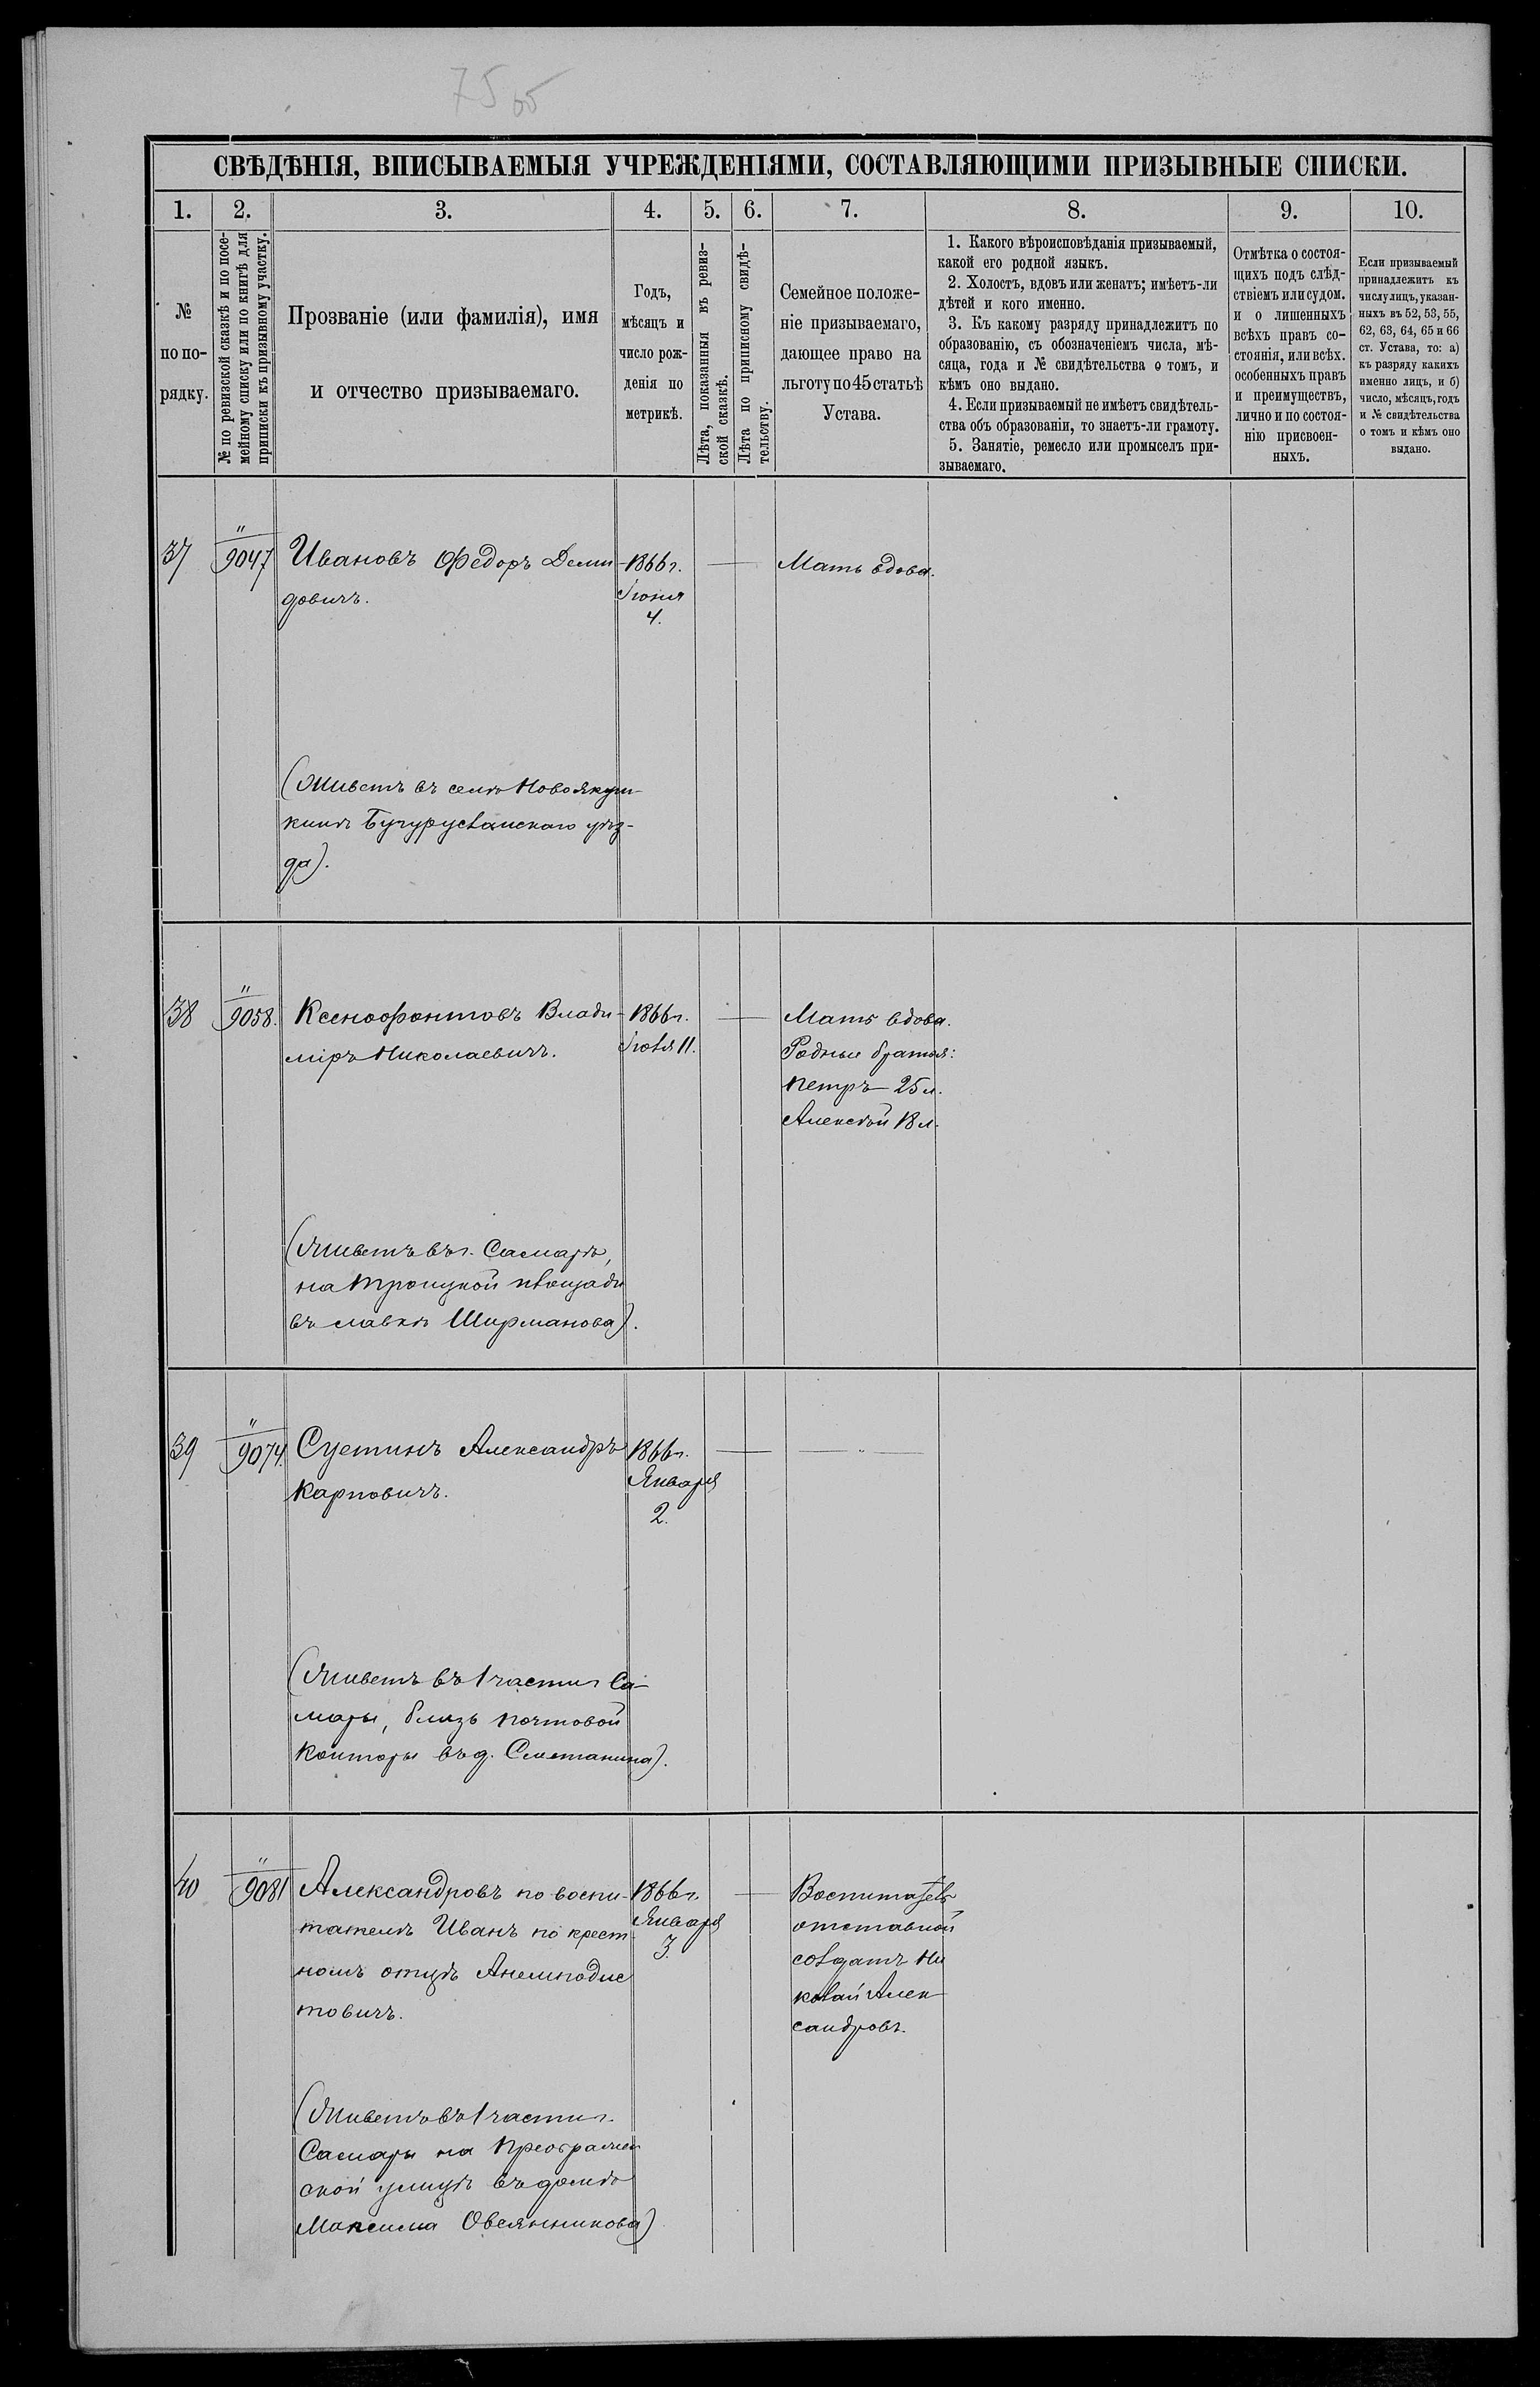 75 65
СВѢДѢНІЯ, ВПИСЫВАЕМЫЯ УЧРЕЖДЕНІЯМИ, СОСТАВЛЯЮЩИМИ ПРИЗЫВНЫЕ СПИСКИ.
1. 2. 3. 4. 5. 6. 7. 8. 9. 10.
№
по по-
рядку.
№ по ревизской сказкѣ и по посе-
мейному списку или по книгѣ для
приписки къ призывному участку.
Прозваніе (или фамилія), имя
и отчество призываемаго.
Годъ,
мѣсяцъ и
число рож-
денія по
метрикѣ.
Лѣта, показанныя въ ревиз-
ской сказкѣ.
Лѣта по приписному свидѣ-
тельству.
Семейное положе-
ніе призываемаго,
дающее право на
льготу по 45 статьѣ
Устава.
1. Какого вѣроисповѣданія призываемый,
какой его родной языкъ.
2. Холостъ, вдовъ или женатъ; имѣетъ-ли
дѣтей и кого именно.
3. Къ какому разряду принадлежитъ по
образованію, съ обозначеніемъ числа, мѣ-
сяца, года и № свидѣтельства о томъ, и
кѣмъ оно выдано.
4. Если призываемый не имѣетъ свидѣтель-
ства объ образованіи, то знаетъ-ли грамоту.
5. Занятіе, ремесло или промыселъ при-
зываемаго.
Отмѣтка о состоя-
щихъ подъ слѣд-
ствіемъ или судомъ.
и о лишенныхъ
всѣхъ правъ со-
стоянія, или всѣх.
особенныхъ правъ
и преимуществъ,
лично и по состоя-
нію присвоен-
ныхъ.
Если призываемый
принадлежитъ къ
числу лицъ, указан-
ныхъ въ 52, 53, 55,
62, 63, 64, 65 и 66
ст. Устава, то: а)
къ разряду какихъ
именно лицъ, и б)
число, мѣсяцъ, годъ
и № свидѣтельства
о томъ и кѣмъ оно
выдано.
37 "/9047 Ивановъ Федоръ Деми-
довичъ.
1866 г.
Іюня
4.
Мать вдова.
(Живетъ въ селѣ Новоякуш-
кинѣ Бугурусланскаго уѣз-
да).
38 "/9058. Ксенофонтовъ Влади-
міръ Николаевичъ.
1866 г.
Іюля 11.
Мать вдова.
Родные братья:
Петръ 25 л.
Алексѣй 18 л.
(Живетъ въ г. Самарѣ,
на Троицкой площади
въ лавкѣ Ширманова).
39 "/9074. Суетинъ Александръ
Карповичъ.
1866 г.
Января
2.
(Живетъ въ 1 части г. Са-
мары, близь почтовой
конторы въ д. Сметанина).
40 "/9081 Александровъ по воспи-
тателѣ Иванъ по крест
номъ отцѣ Анемподис
товичъ.
1866 г.
Января
3.
Воспитатель
отставной
солдатъ Ни
колай Алек
сандровъ.
(Живетъ въ 1 части г.
Самары на Преображен
ской улицѣ въ домѣ
Максима Овсянникова)